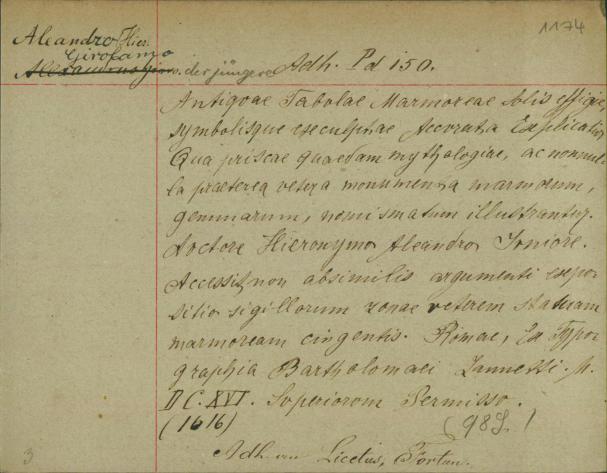 1174
Aleandro Hier.
Girolamo
Alexandrus Hieron. der jüngere Adh. Pd 150.
Antiquae Tabulae Marmoreae Solis effigie,
symbolisque exculptae Accurata Explicatio,
Qua priscae quaedam mythologiae, ac nonnul-
la praeterea vetera monumenta marmorum,
gemmarum, nomismatum illustrantur.
Auctore Hieronymo Aleandro Iuniore.
Accessit non absimilis argumenti expo-
sitio sigillorum zonae veterem statuam
marmoream cingentis. Romae, Ex Typo-
graphia Bartholomaei Zannetti. M.
DC. XVI. Superiorom Permisso.
(1616) (98 S.)
Adh. an Licetus, Fortun.
3